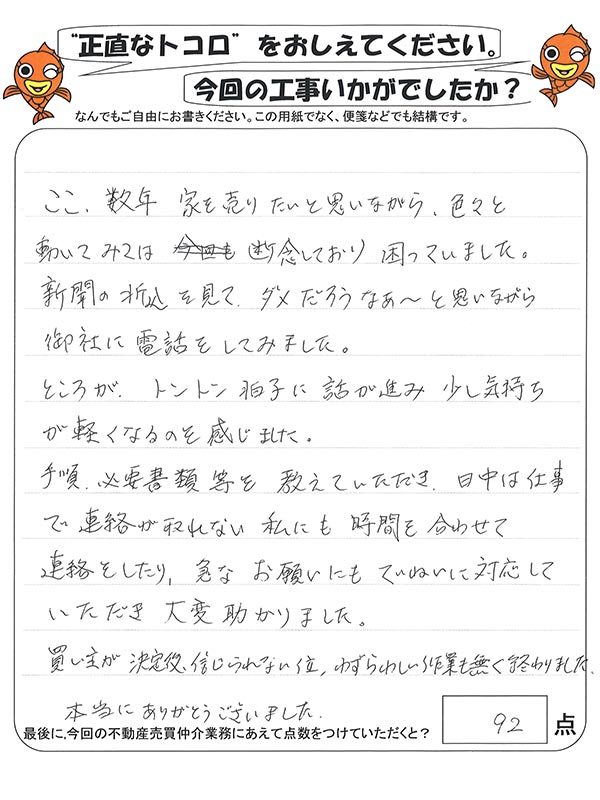 "正直なトコロ"をおしえてください。
今回の工事いかがでしたか？
なんでもご自由にお書きください。この用紙でなく、便箋などでも結構です。
ここ、数年 家を売りたいと思いながら、色々と
動いてみては 今回も 断念しており 困っていました。
新聞の折込を見て、ダメだろうなあ〜と思いながら
御社に電話をしてみました。
ところが、トントン拍子に話が進み 少し気持ち
が軽くなるのを感じました。
手順、必要書類等を教えていただき、日中は仕事
で連絡が取れない私にも時間を合わせて
連絡をしたり、急なお願いにもていねいに対応して
いただき大変助かりました。
買い主が決定後、信じられない位、わずらわしい作業も無く終わりました。
本当にありがとうございました。
最後に、今回の不動産売買仲介業務にあえて点数をつけていただくと？
92 点